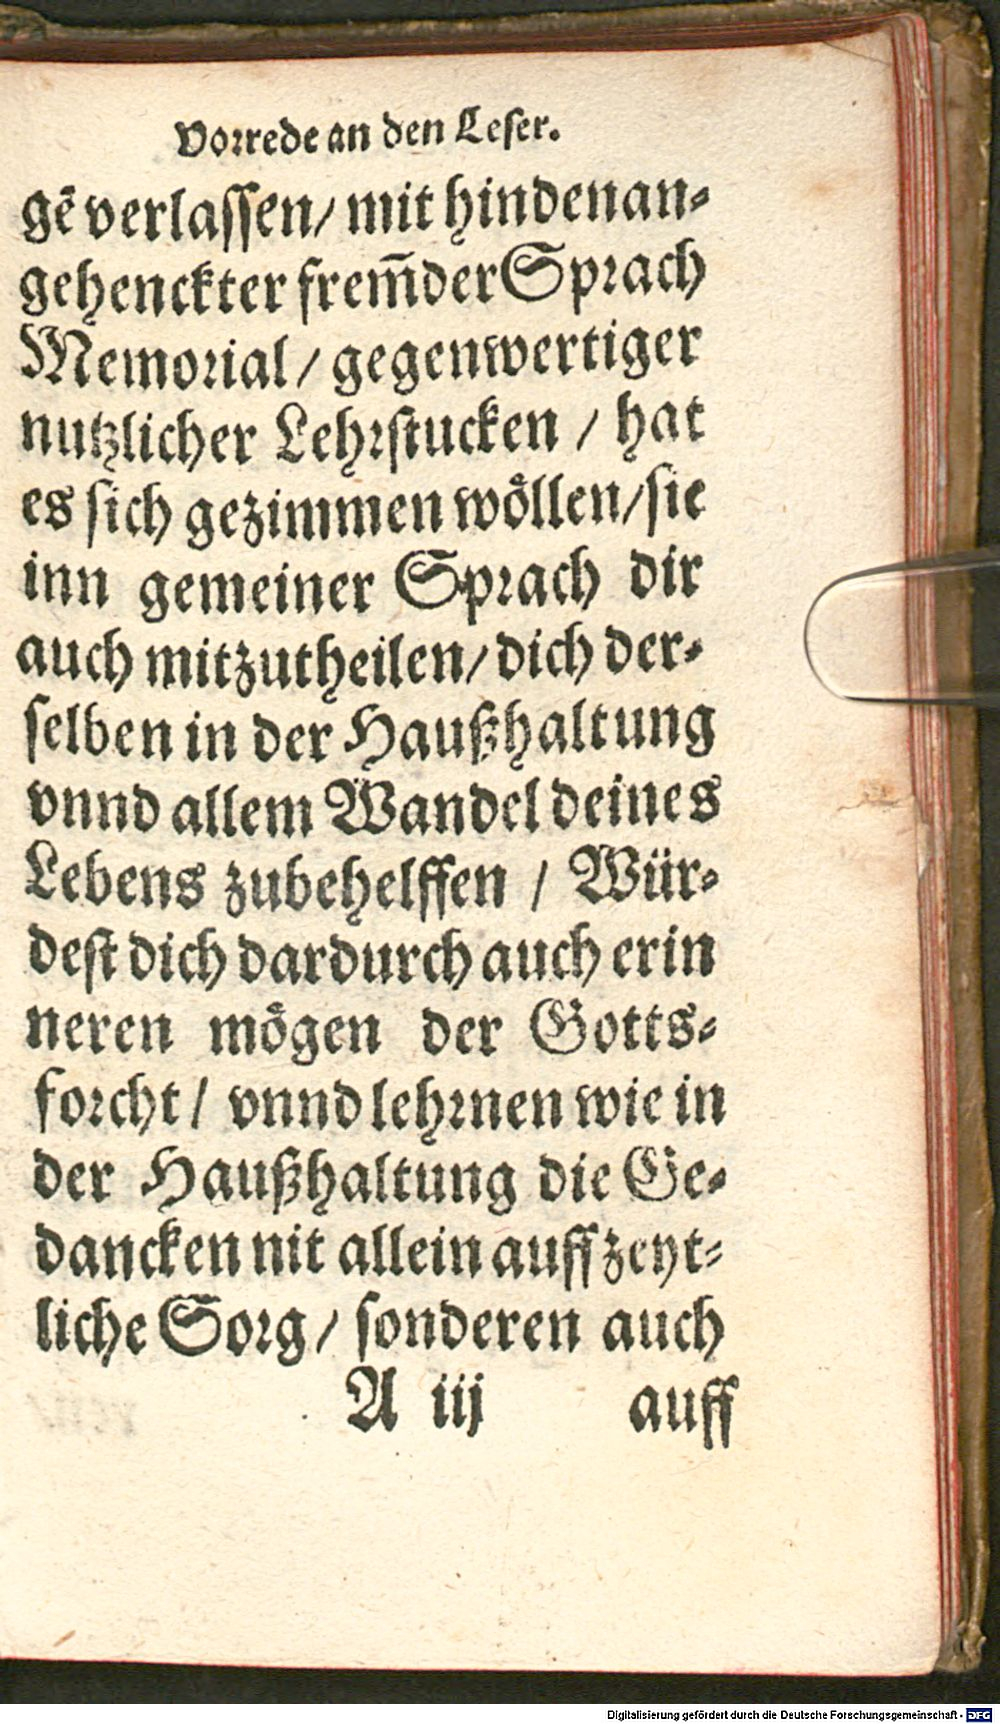 Vorrede an den Leser.
gē verlassen/ mit hindenan-
gehenckter frem̄der Sprach
Memorial/ gegenwertiger
nutzlicher Lehrstucken / hat
es sich gezimmen wöllen/sie
inn gemeiner Sprach dir
auch mitzutheilen/ dich der-
selben in der Haußhaltung
vnnd allem Wandel deines
Lebens zubehelffen / Wür-
dest dich dardurch auch erin
neren mögen der Gotts-
forcht/ vnnd lehrnen wie in
der Haußhaltung die Ge-
dancken nit allein auff zeyt-
liche Sorg/ sonderen auch
A iij auff
Digitalisierung gefördert durch die Deutsche Forschungsgemeinschaft - DFG